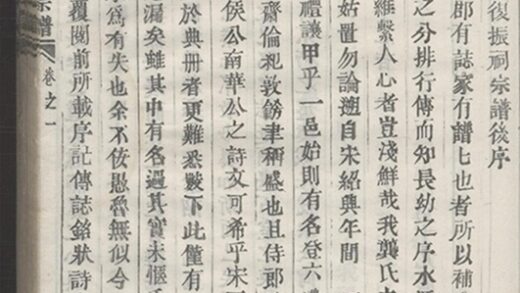 復振祠宗譜後序
郡有誌家有譜匕也者所以補
之分排行傳而知長幼之序水
維繫人心者豈淺鮮哉我龔氏
姑置勿論遡自宋紹興年間
禮讓甲乎一邑始則有名登六
齋倫祀敦飭聿稱盛也且侍郎
侯公南華公之詩文可希乎宋
於典冊者更難悉數下此僅有
漏矣雖其中有名過其實未愜
爲有失也余不佞愚魯無似今
覆閱前所載序記傳誌銘狀詩
宗譜 卷之一